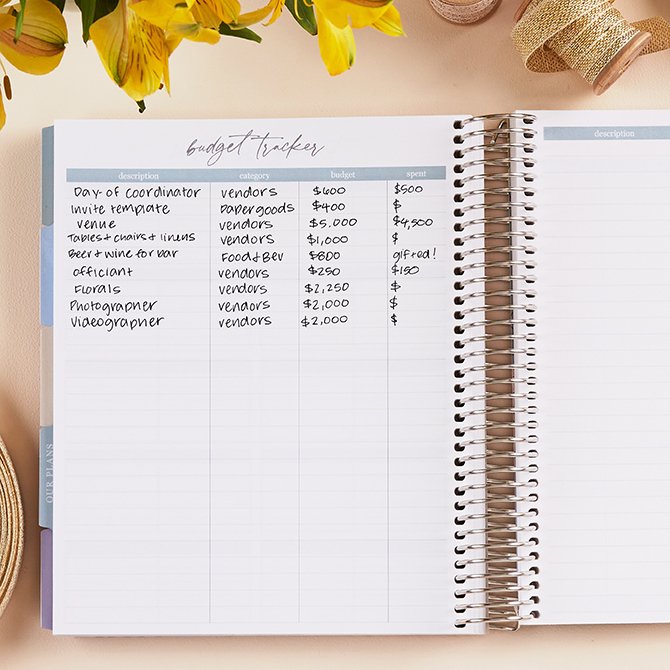 budget tracker
description category budget spent
Day-of coordinator vendors $600 $500
Invite template Paper goods $400 $
venue vendors $5,000 $4,500
Tables + chairs + linens vendors $1,000 $
Beer + wine for bar Food + Bev $800 gifted!
officiant vendors $250 $150
Florals vendors $2,250 $
Photographer vendors $2,000 $
Videographer vendors $2,000 $
OUR PLANS
description